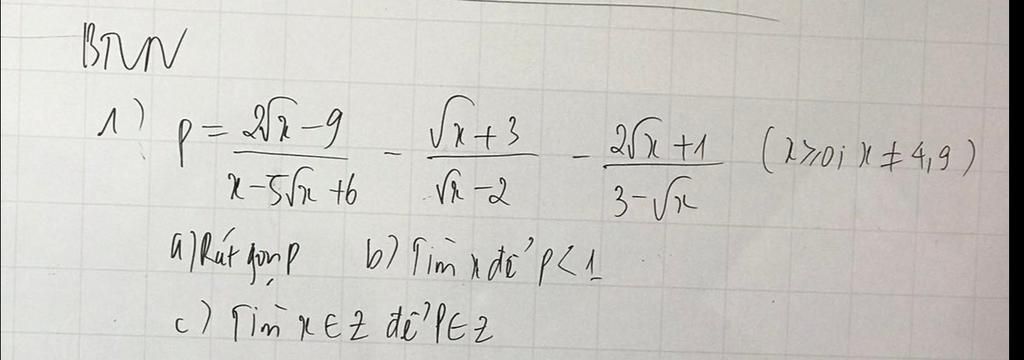 BTVN
1) P = (2√x - 9)/(x - 5√x + 6) - (√x + 3)/(√x - 2) - (2√x + 1)/(3 - √x) (x ≥ 0; x ≠ 4, 9)
a) Rút gọn P b) Tìm x để P < 1
c) Tìm x ∈ Z để P ∈ Z